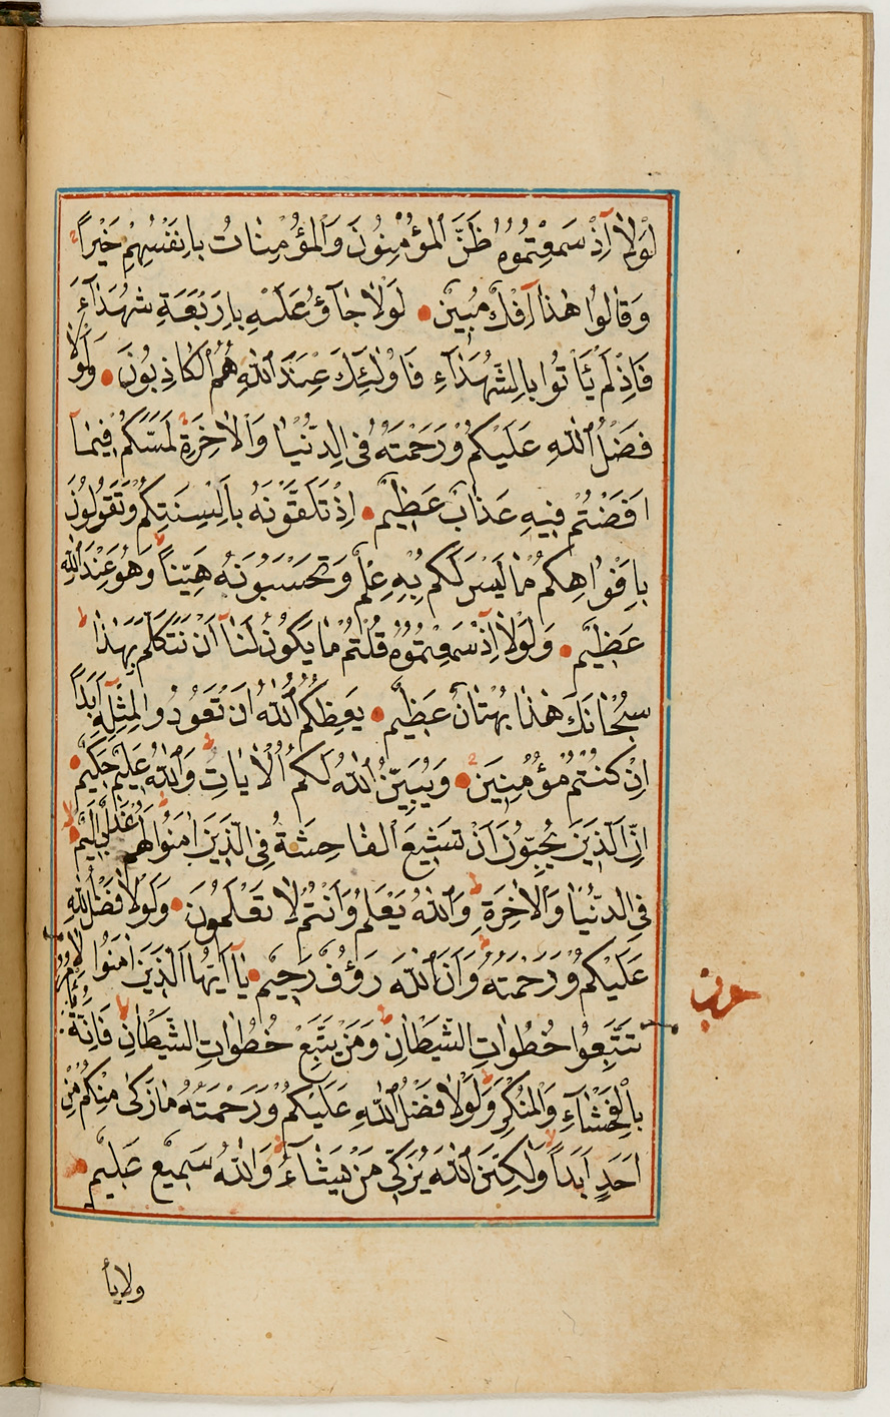 لَوْلَا إِذْ سَمِعْتُمُوهُ ظَنَّ الْمُؤْمِنُونَ وَالْمُؤْمِنَاتُ بِأَنْفُسِهِمْ خَيْرًا
وَقَالُوا هٰذَا إِفْكٌ مُبِينٌ لَوْلَا جَاؤُ عَلَيْهِ بِأَرْبَعَةِ شُهَدَاءَ
فَإِذْ لَمْ يَأْتُوا بِالشُّهَدَاءِ فَأُولٰئِكَ عِنْدَ اللهِ هُمُ الْكَاذِبُونَ وَلَوْلَا
فَضْلُ اللهِ عَلَيْكُمْ وَرَحْمَتُهُ فِي الدُّنْيَا وَالْاٰخِرَةِ لَمَسَّكُمْ فِيمَا
اَفَضْتُمْ فِيهِ عَذَابٌ عَظِيمٌ اِذْ تَلَقَّوْنَهُ بِاَلْسِنَتِكُمْ وَتَقُولُونَ
بِاَفْوَاهِكُمْ مَا لَيْسَ لَكُمْ بِهِ عِلْمٌ وَتَحْسَبُونَهُ هَيِّنًا وَهُوَ عِنْدَ اللهِ
عَظِيمٌ وَلَوْلَا اِذْ سَمِعْتُمُوهُ قُلْتُمْ مَا يَكُونُ لَنَا اَنْ نَتَكَلَّمَ بِهٰذَا
سُبْحَانَكَ هٰذَا بُهْتَانٌ عَظِيمٌ يَعِظُكُمُ اللهُ اَنْ تَعُودُوا لِمِثْلِهِ اَبَدًا
اِنْ كُنْتُمْ مُؤْمِنِينَ وَيُبَيِّنُ اللهُ لَكُمُ الْاٰيَاتِ وَاللهُ عَلِيمٌ حَكِيمٌ
اِنَّ الَّذِينَ يُحِبُّونَ اَنْ تَشِيعَ الْفَاحِشَةُ فِي الَّذِينَ اٰمَنُوا لَهُمْ عَذَابٌ اَلِيمٌ
فِي الدُّنْيَا وَالْاٰخِرَةِ وَاللهُ يَعْلَمُ وَاَنْتُمْ لَا تَعْلَمُونَ وَلَوْلَا فَضْلُ اللهِ
عَلَيْكُمْ وَرَحْمَتُهُ وَاَنَّ اللهَ رَؤُفٌ رَحِيمٌ يَا اَيُّهَا الَّذِينَ اٰمَنُوا لَا
تَتَّبِعُوا خُطُوَاتِ الشَّيْطَانِ وَمَنْ يَتَّبِعْ خُطُوَاتِ الشَّيْطَانِ فَاِنَّهُ يَأْمُرُ
بِالْفَحْشَاءِ وَالْمُنْكَرِ وَلَوْلَا فَضْلُ اللهِ عَلَيْكُمْ وَرَحْمَتُهُ مَا زَكٰى مِنْكُمْ مِنْ
اَحَدٍ اَبَدًا وَلٰكِنَّ اللهَ يُزَكِّي مَنْ يَشَاءُ وَاللهُ سَمِيعٌ عَلِيمٌ
ولا يأ